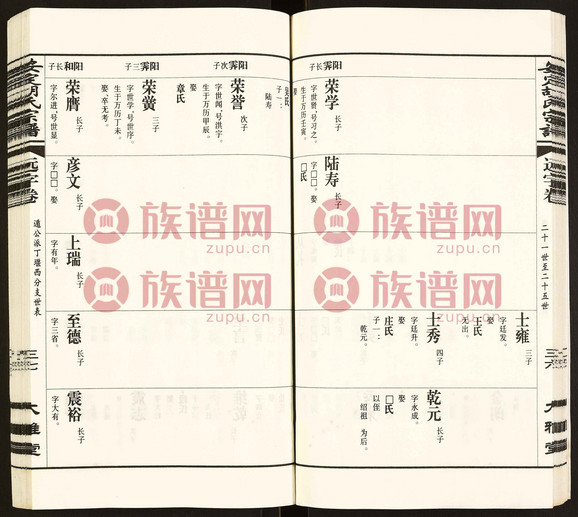 二十一世至二十五世
大雅堂
士雍 三子
字廷发。
娶
王氏
无出。
士秀 四子
字廷升。
娶
庄氏
子一：
乾元。
乾元 长子
字永成。
娶
□氏
以侄
绍祖 为后。
阳霁 长子
荣学 长子
字世贤，号习之。
生于万历壬寅。
娶
吴氏
子一：
陆寿
陆寿 长子
字□□。娶
□氏
阳霁 次子
荣誉 次子
字世闻，号洪字。
生于万历甲辰。
娶
章氏
阳霁 三子
荣黉 三子
字世学，号世序。
生于万历丁未。
娶、卒无考。
阳和 长子
荣膺 长子
字尔进，号世显。
彦文 长子
字□□。娶
上瑞 长子
字有年。
至德 长子
字三省。
震裕 长子
字大有。
远字卷
遁公派丁堰西分支世表
大雅堂
族谱网
zupu.cn
族谱网
zupu.cn
族谱网
zupu.cn
族谱网
zupu.cn